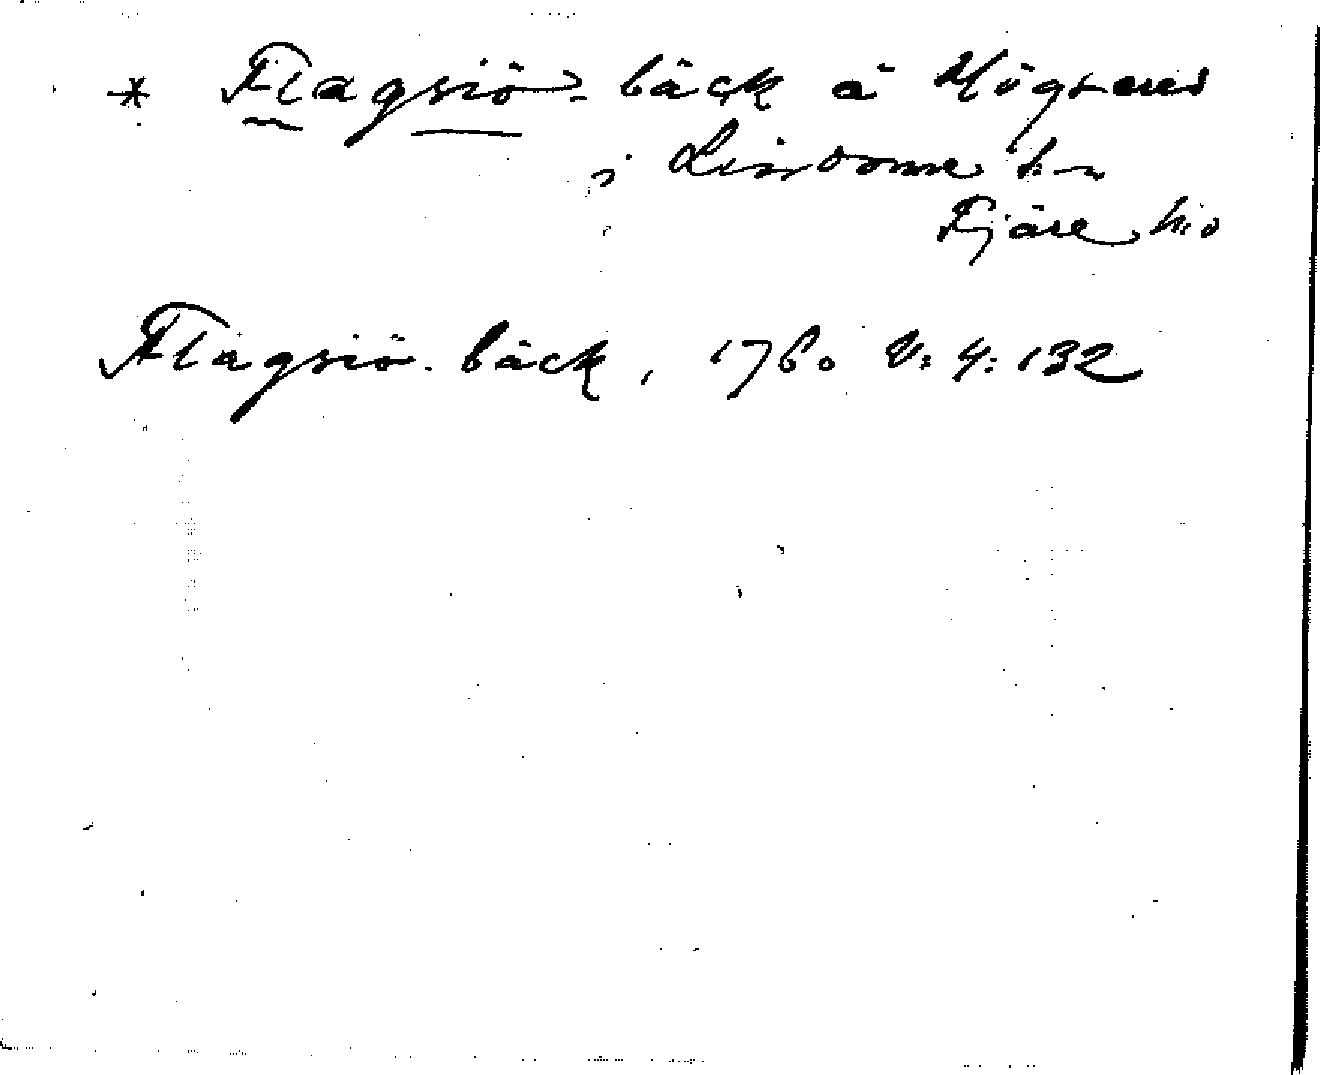 * Flagsiö-bäck å Högsered
i Lindome sn
Fjäre hd
Flagsiö-bäck, 1760 V: 4: 132